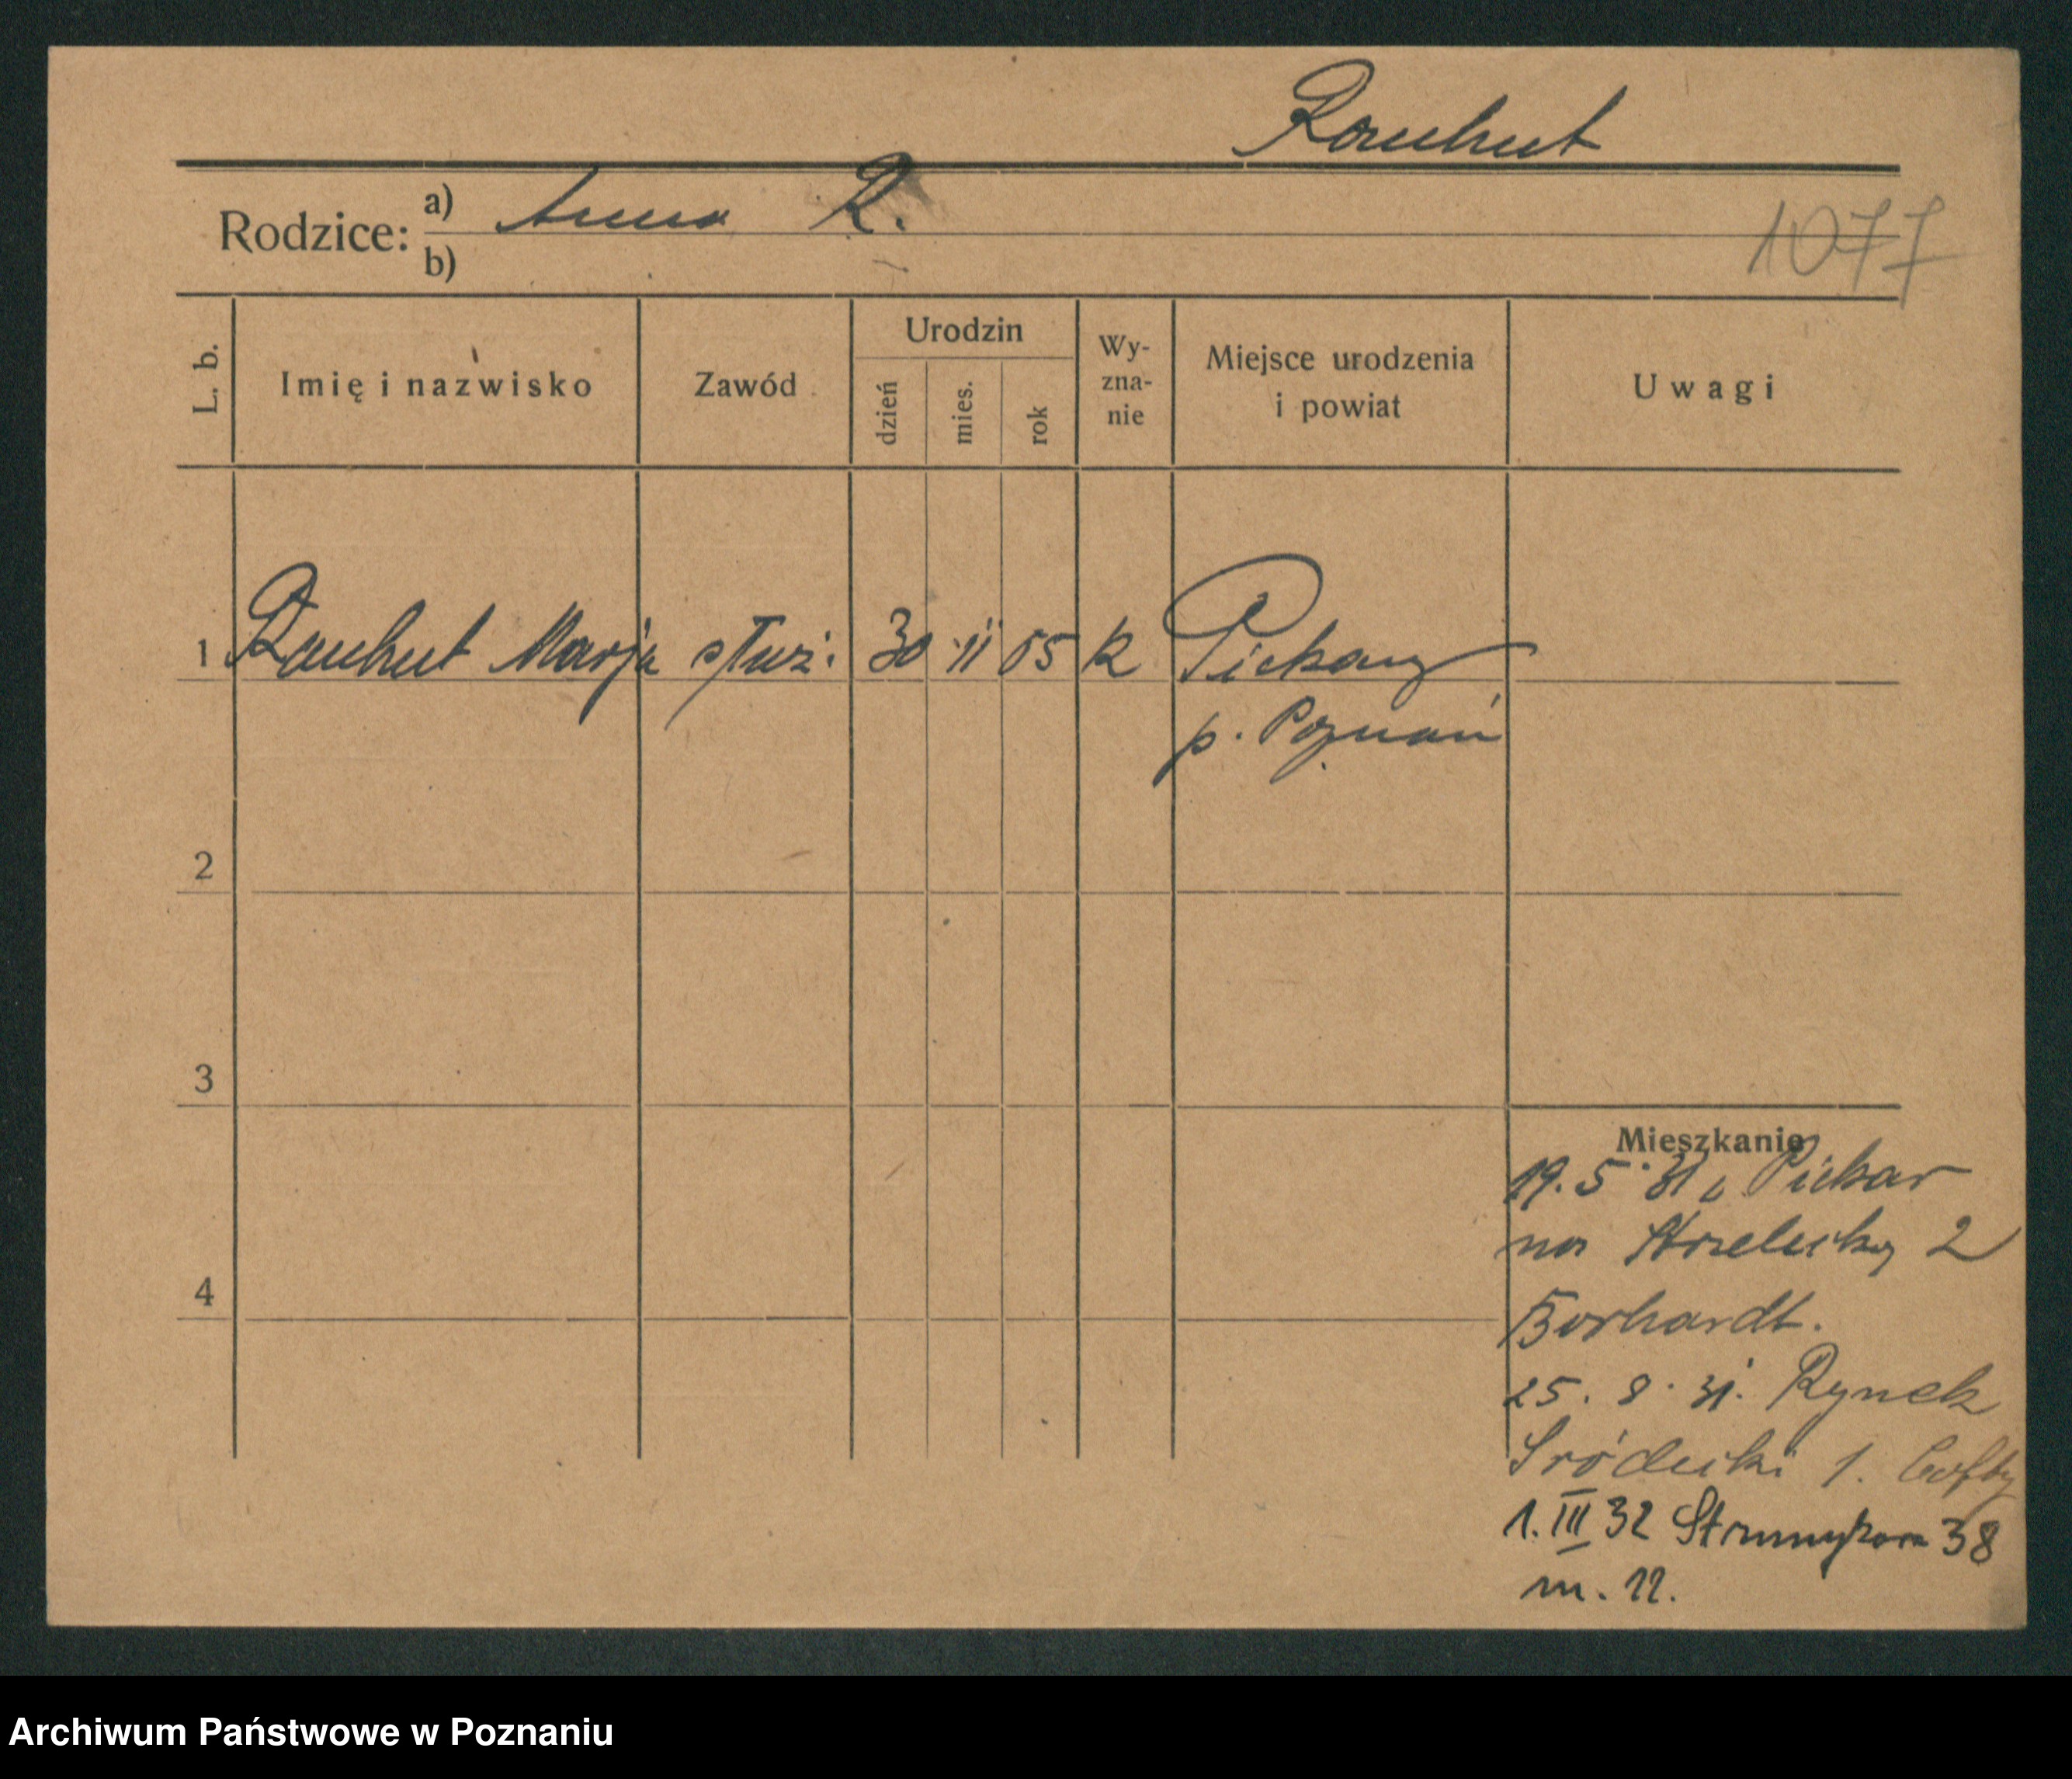 Rauhut
Rodzice: a) Anna R.
b)
1077
L. b. Imię i nazwisko Zawód Urodzin dzień mies. rok Wy-zna-nie Miejsce urodzenia i powiat Uwagi
1 Rauhut Marja służ. 30 11 05 k Piekary
p. Poznań
2
3
4
Mieszkanie
19. 5. 31 z Piekar
na Strzelecką 2
Borhardt.
25. 8. 31. Rynek
Śródecki 1.
1. III 32 Strumykowa 38
m. 11.
Archiwum Państwowe w Poznaniu